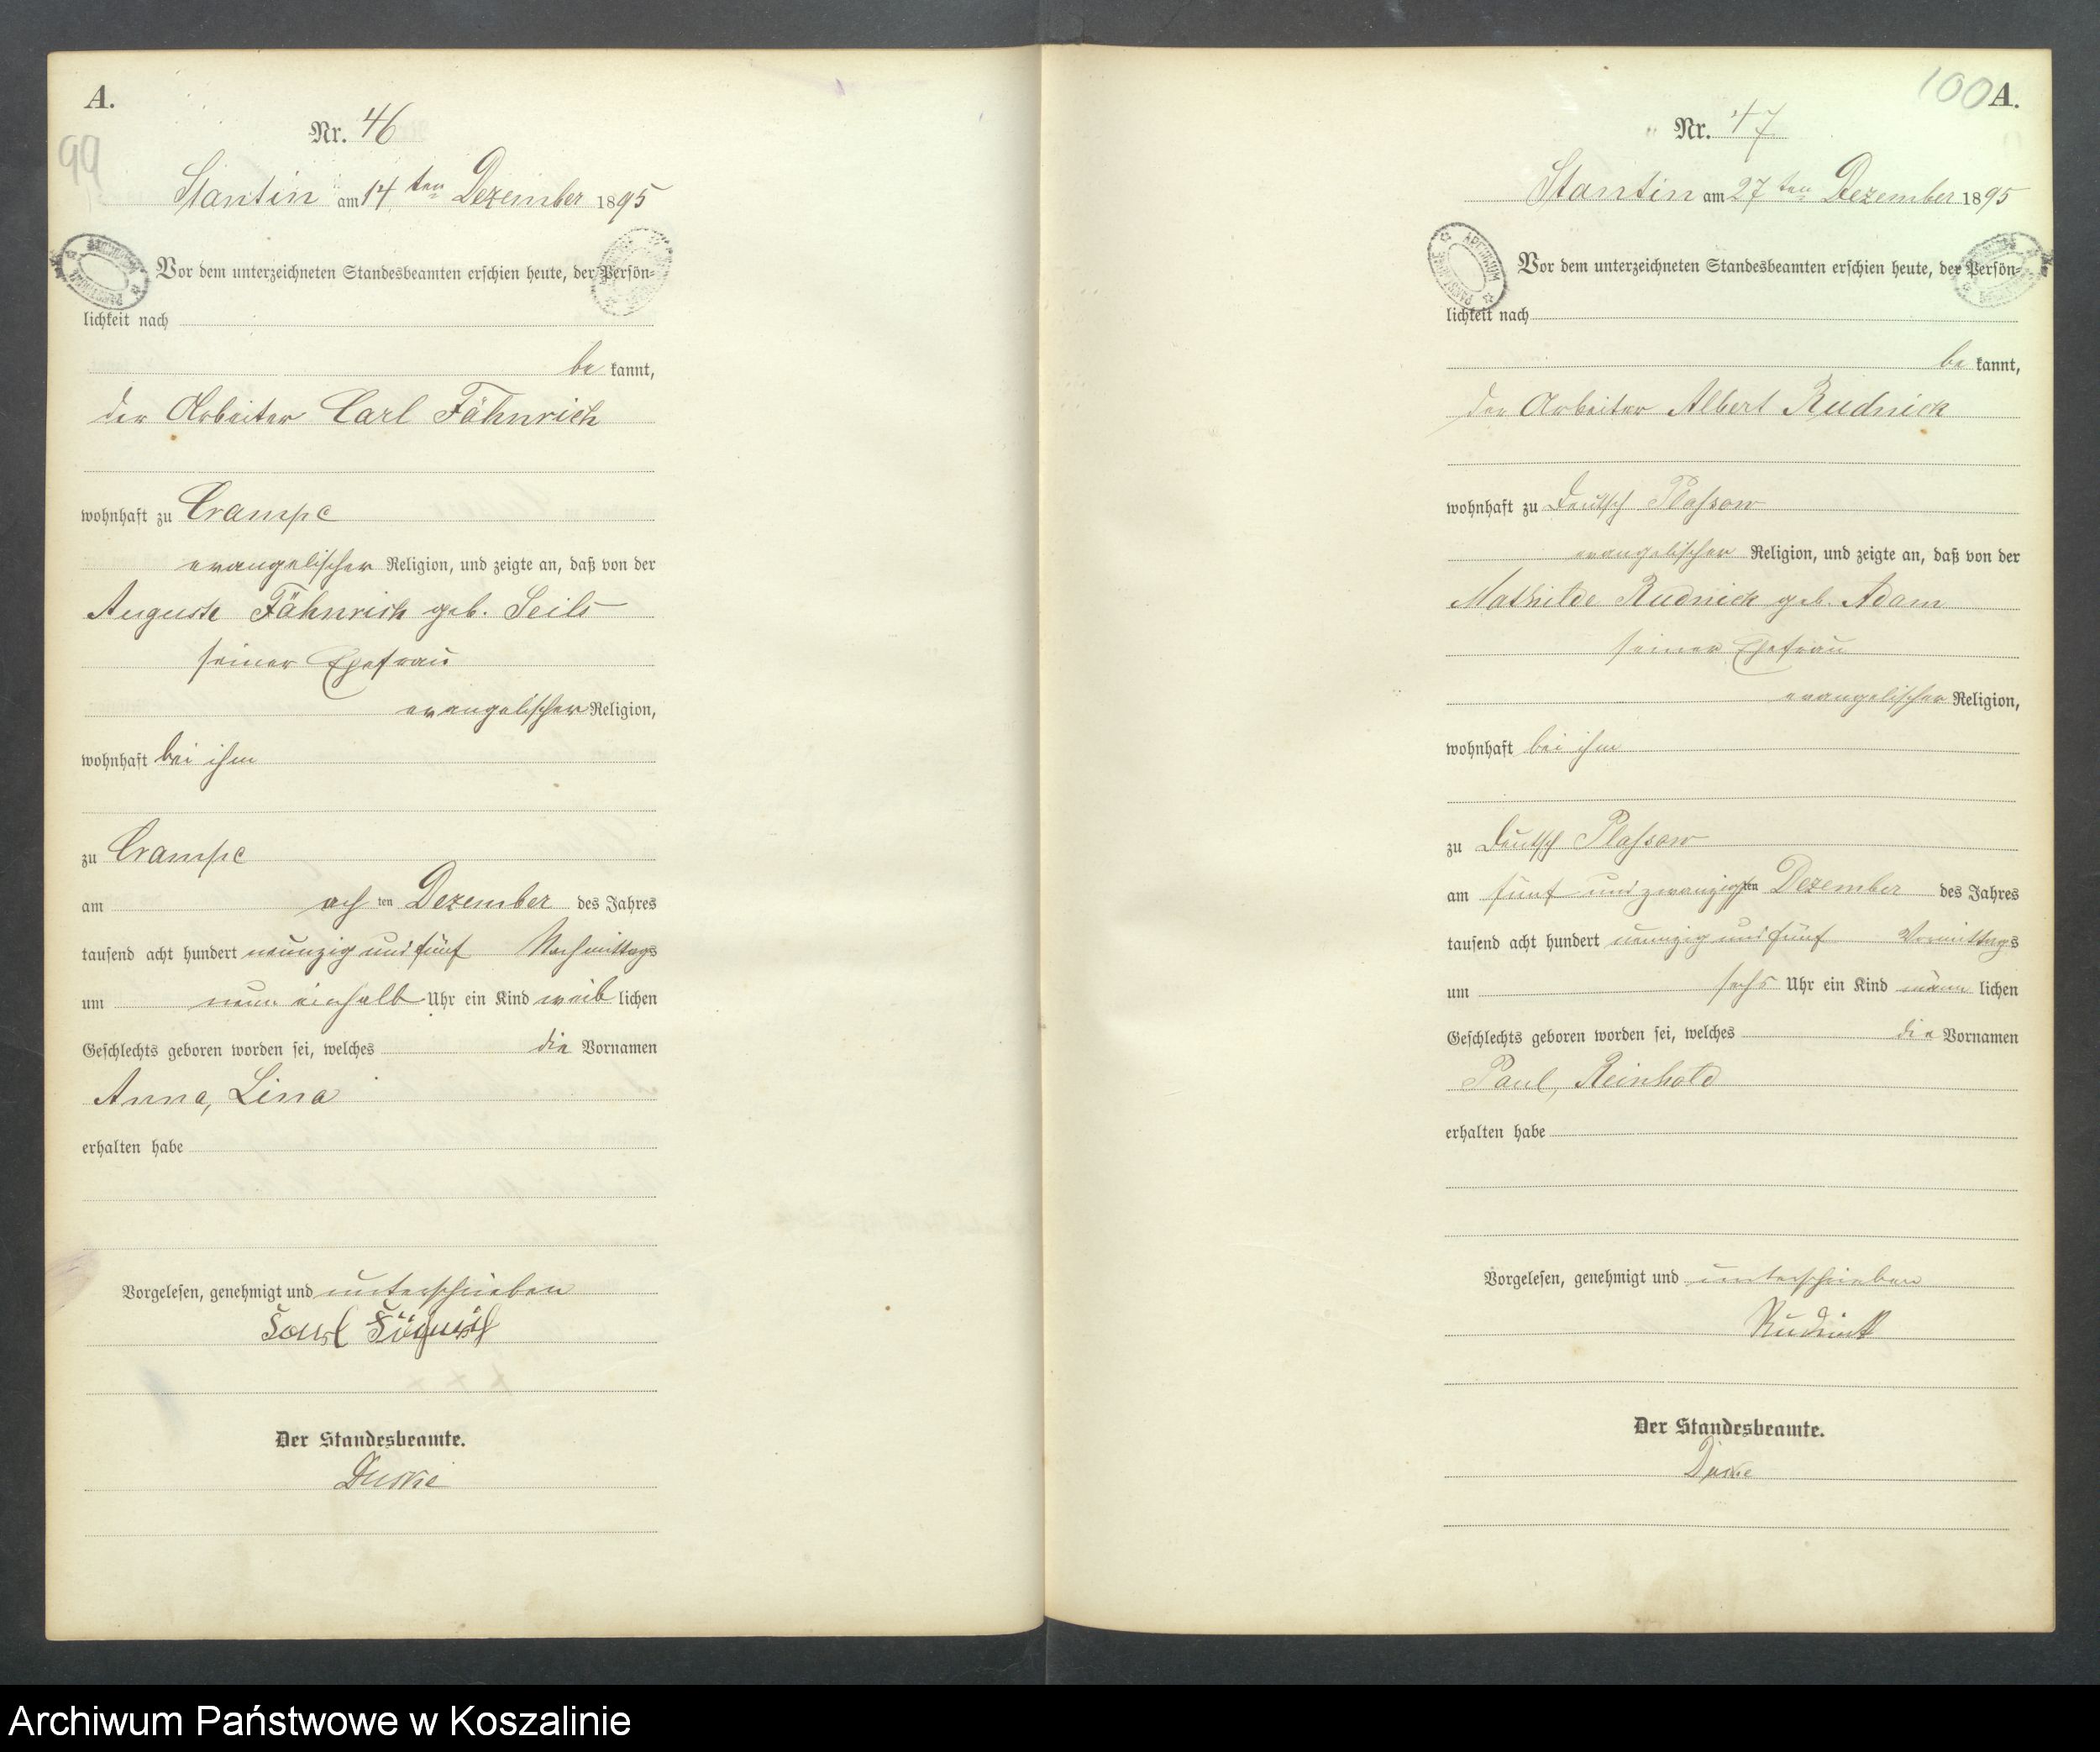 A.
99
Nr. 46
Stantin am 14ten Dezember 1895
Vor dem unterzeichneten Standesbeamten erschien heute, der Persön-
lichkeit nach
be kannt,
der Arbeiter Carl Fähnrich
wohnhaft zu Crampe
evangelischer Religion, und zeigte an, daß von der
Auguste Fähnrich geb. Seils
seiner Ehefrau
evangelischer Religion,
wohnhaft bei ihm
zu Crampe
am ach ten Dezember des Jahres
tausend acht hundert neunzig und fünf Nachmittags
um neun einhalb Uhr ein Kind weib lichen
Geschlechts geboren worden sei, welches die Vornamen
Anna, Lina
erhalten habe
Vorgelesen, genehmigt und unterschrieben
Carl
Der Standesbeamte.
ARCHIWUM
100 A.
Nr. 47
Stantin am 27ten Dezember 1895
ARCHIWUM
Vor dem unterzeichneten Standesbeamten erschien heute, der Persön-
lichkeit nach
be kannt,
der Arbeiter Albert Rudnick
wohnhaft zu Deutsch Plassow
evangelischer Religion, und zeigte an, daß von der
Mathilde Rudnick geb. Adam
seiner Ehefrau
evangelischer Religion,
wohnhaft bei ihm
zu Deutsch Plassow
am fünf und zwanzigsten Dezember des Jahres
tausend acht hundert neunzig und fünf Vormittags
um sechs Uhr ein Kind männ lichen
Geschlechts geboren worden sei, welches die Vornamen
Paul, Reinhold
erhalten habe
Vorgelesen, genehmigt und unterschrieben
Rudnick
Der Standesbeamte.
Archiwum Państwowe w Koszalinie